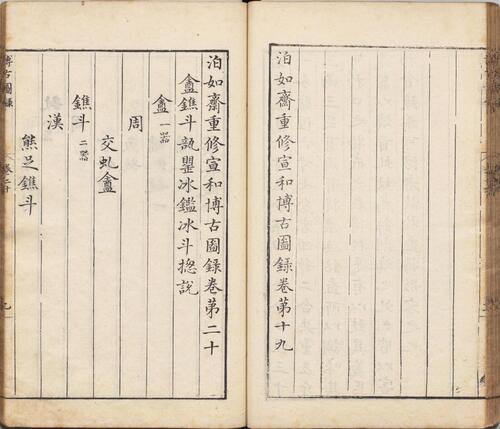 泊如齋重修宣和博古圖錄卷第十九
泊如齋重修宣和博古圖錄卷第二十
盦鐎斗瓿罌冰鑑冰斗揔說
盦一器
周
交虬盦
鐎斗二器
漢
熊足鐎斗
博古圖錄